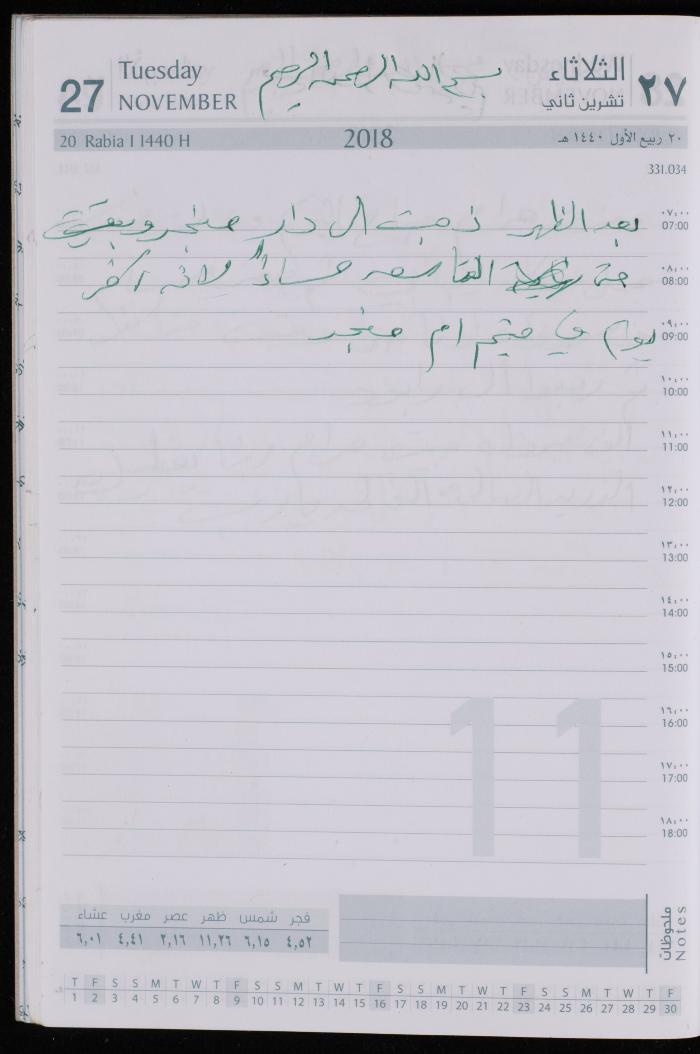 27
Tuesday
NOVEMBER
بسم الله الرحمن الرحيم
الثلاثاء
تشرين ثاني
٢٧
20 Rabia I 1440 H
2018
٢٠ ربيع الأول ١٤٤٠ هـ
331.034
بعد الظهر ذهبت الى دار منجد وبقيت
حتى التاسعه مساءً لانه اخر
يوم في ميتم ام منجد
٠٧,٠٠
07:00
٠٨,٠٠
08:00
٠٩,٠٠
09:00
١٠,٠٠
10:00
١١,٠٠
11:00
١٢,٠٠
12:00
١٣,٠٠
13:00
١٤,٠٠
14:00
١٥,٠٠
15:00
١٦,٠٠
16:00
١٧,٠٠
17:00
١٨,٠٠
18:00
11
فجر شمس ظهر عصر مغرب عشاء
٤,٥٢ ٦,١٥ ١١,٢٦ ٢,١٦ ٤,٤١ ٦,٠١
ملحوظات
Notes
T F S S M T W T F S S M T W T F S S M T W T F S S M T W T F
1 2 3 4 5 6 7 8 9 10 11 12 13 14 15 16 17 18 19 20 21 22 23 24 25 26 27 28 29 30